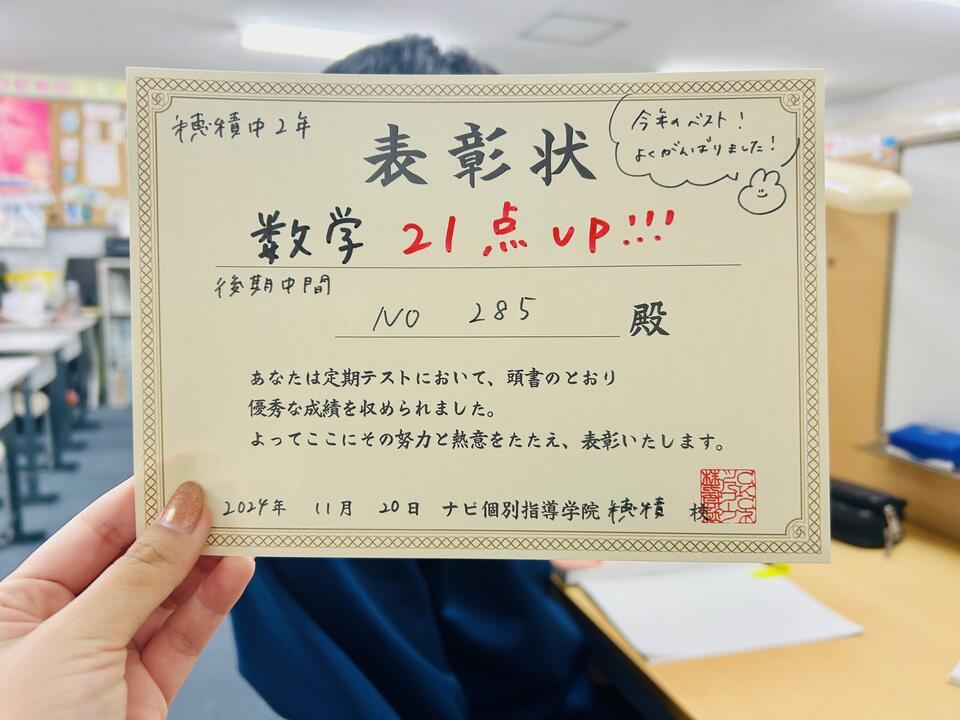 穂積中2年
表彰状
今年のベスト!
よくがんばりました!
数学 21点UP!!!
後期中間
NO 285 殿
あなたは定期テストにおいて、頭書のとおり
優秀な成績を収められました。
よってここにその努力と熱意をたたえ、表彰いたします。
2024年 11月 20日 ナビ個別指導学院 穂積 校